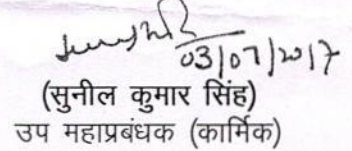 03/07/2017
(सुनील कुमार सिंह)
उप महाप्रबंधक (कार्मिक)